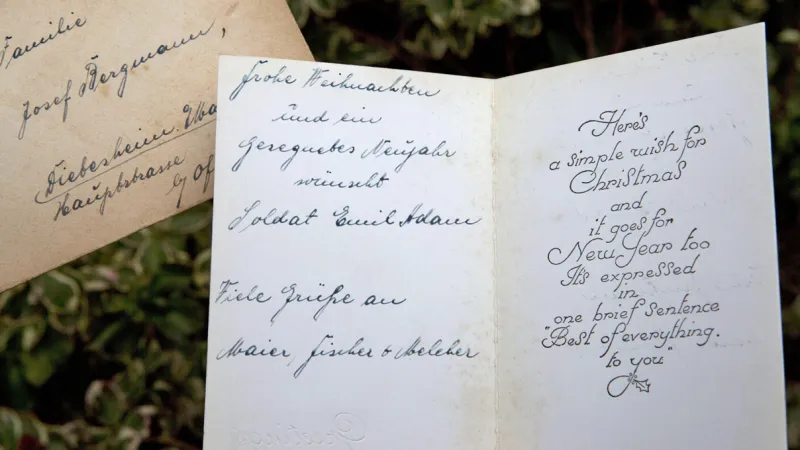 Familie
Josef Bergmann,
Diebesheim
Hauptstrasse
by
Frohe Weihnachten
und ein
Gesegnetes Neujahr
wünscht
Soldat Emil Adam
Viele Grüße an
Maier, Fischer + Melcher
Greetings
Here's
a simple wish for
Christmas
and
it goes for
New Year too
It's expressed
in
one brief sentence
"Best of everything.
to you"